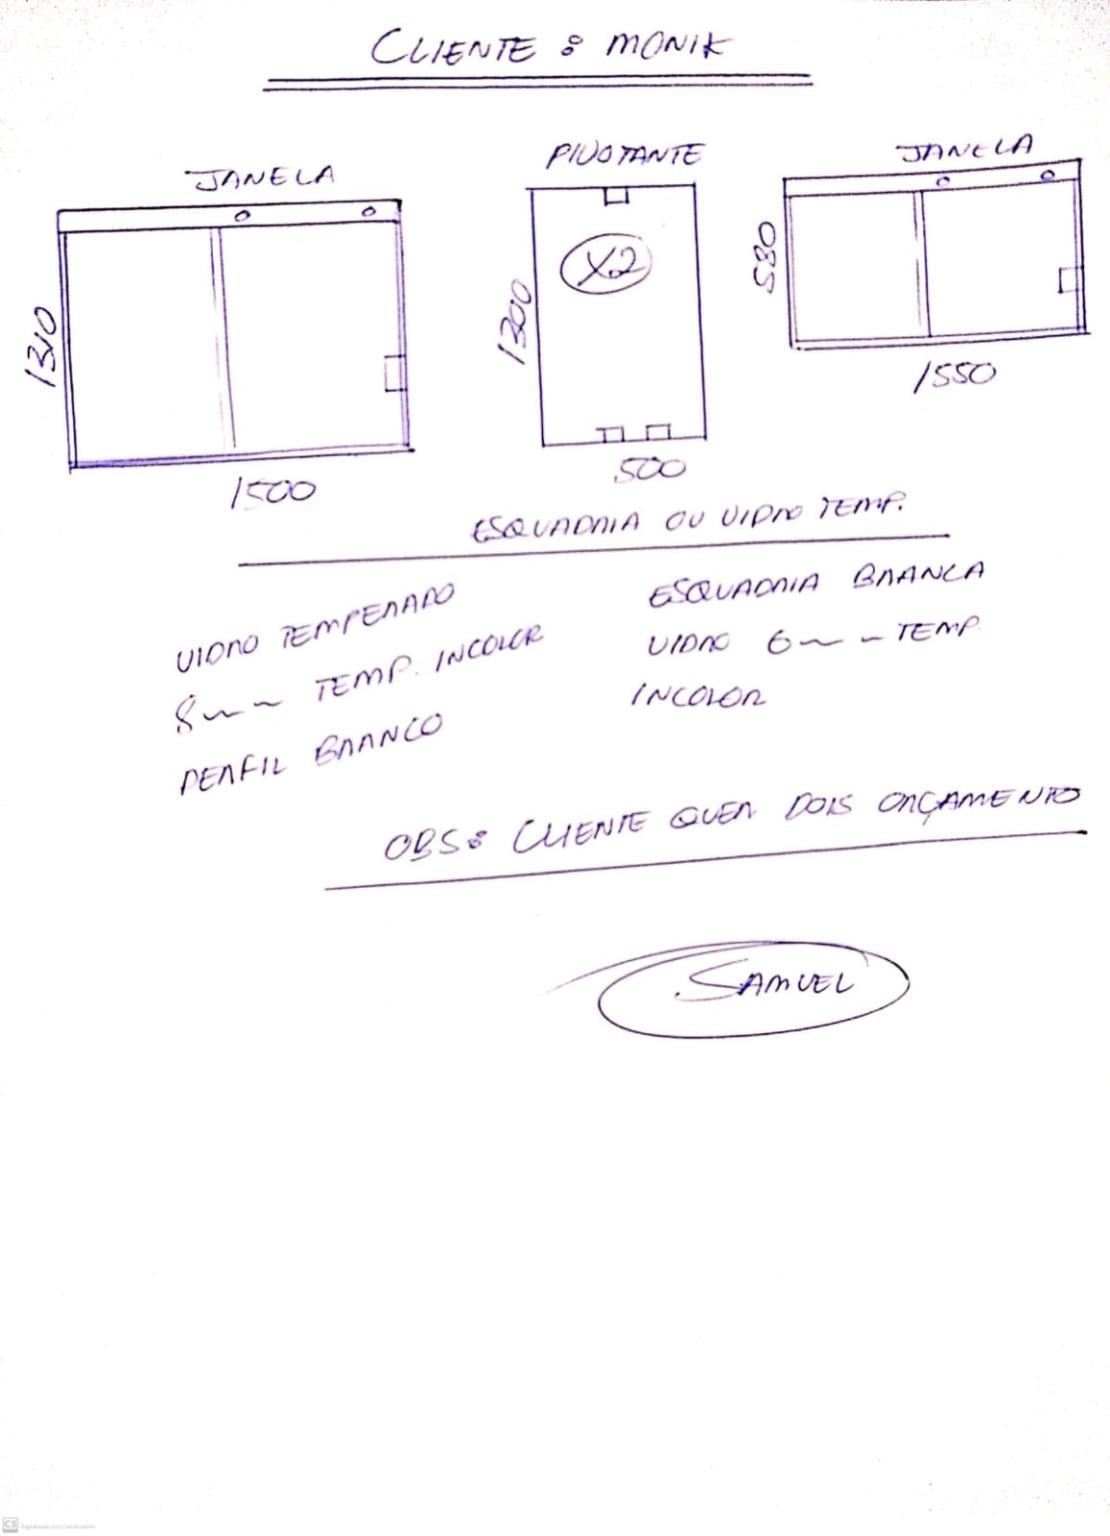 CLIENTE : MONIK
JANELA
PIVOTANTE
JANELA
1310
1500
X2
1300
500
530
1550
ESQUADRIA OU VIDRO TEMP.
VIDRO TEMPERADO
8mm TEMP. INCOLOR
PERFIL BRANCO
ESQUADRIA BRANCA
VIDRO 6mm TEMP
INCOLOR
OBS: CLIENTE QUER DOIS ORÇAMENTO
SAMUEL
CS